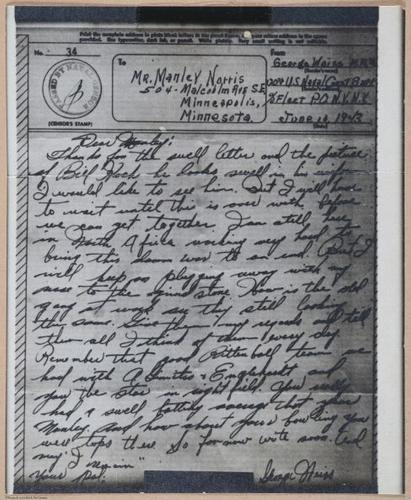 Print the complete address in plain block letters in the panel below, and your return address in the space
provided. Use typewriter, dark ink, or pencil. Write plainly. Very small writing is not suitable.
No. 34
PASSED BY NAVAL CENSOR
(CENSOR'S STAMP)
To
MR. Manley Norris
504-Malcolm Ave S.E.
Minneapolis,
Minnesota.
From
George Weiss
(Sender's name)
U.S. Naval
(Sender's address)
% Fleet P.O. N.Y. N.Y.
June 10, 1943
(Date)
Dear Manley:
Thanks for the swell letter and the picture
of Bill Koch he looks swell in his uniform
I would like to see him. But I will have
to wait until this is over with before
we can get together. I am still here
in North Africa working very hard to
bring this damn war to an end. But I
will keep on plugging away with my
nose to the grind stone. How is the old
gang at work say they still looking
the same. Give them my regards and tell
them all I think of them every day.
Remember that good Kittenball team we
had with A. and Englehardt and
you the Star in right field. You really
had a swell batting average that year
Manley. And how about your bowling you
were tops there. So for now write soon. And
may I remain
your Pal.
George Weiss